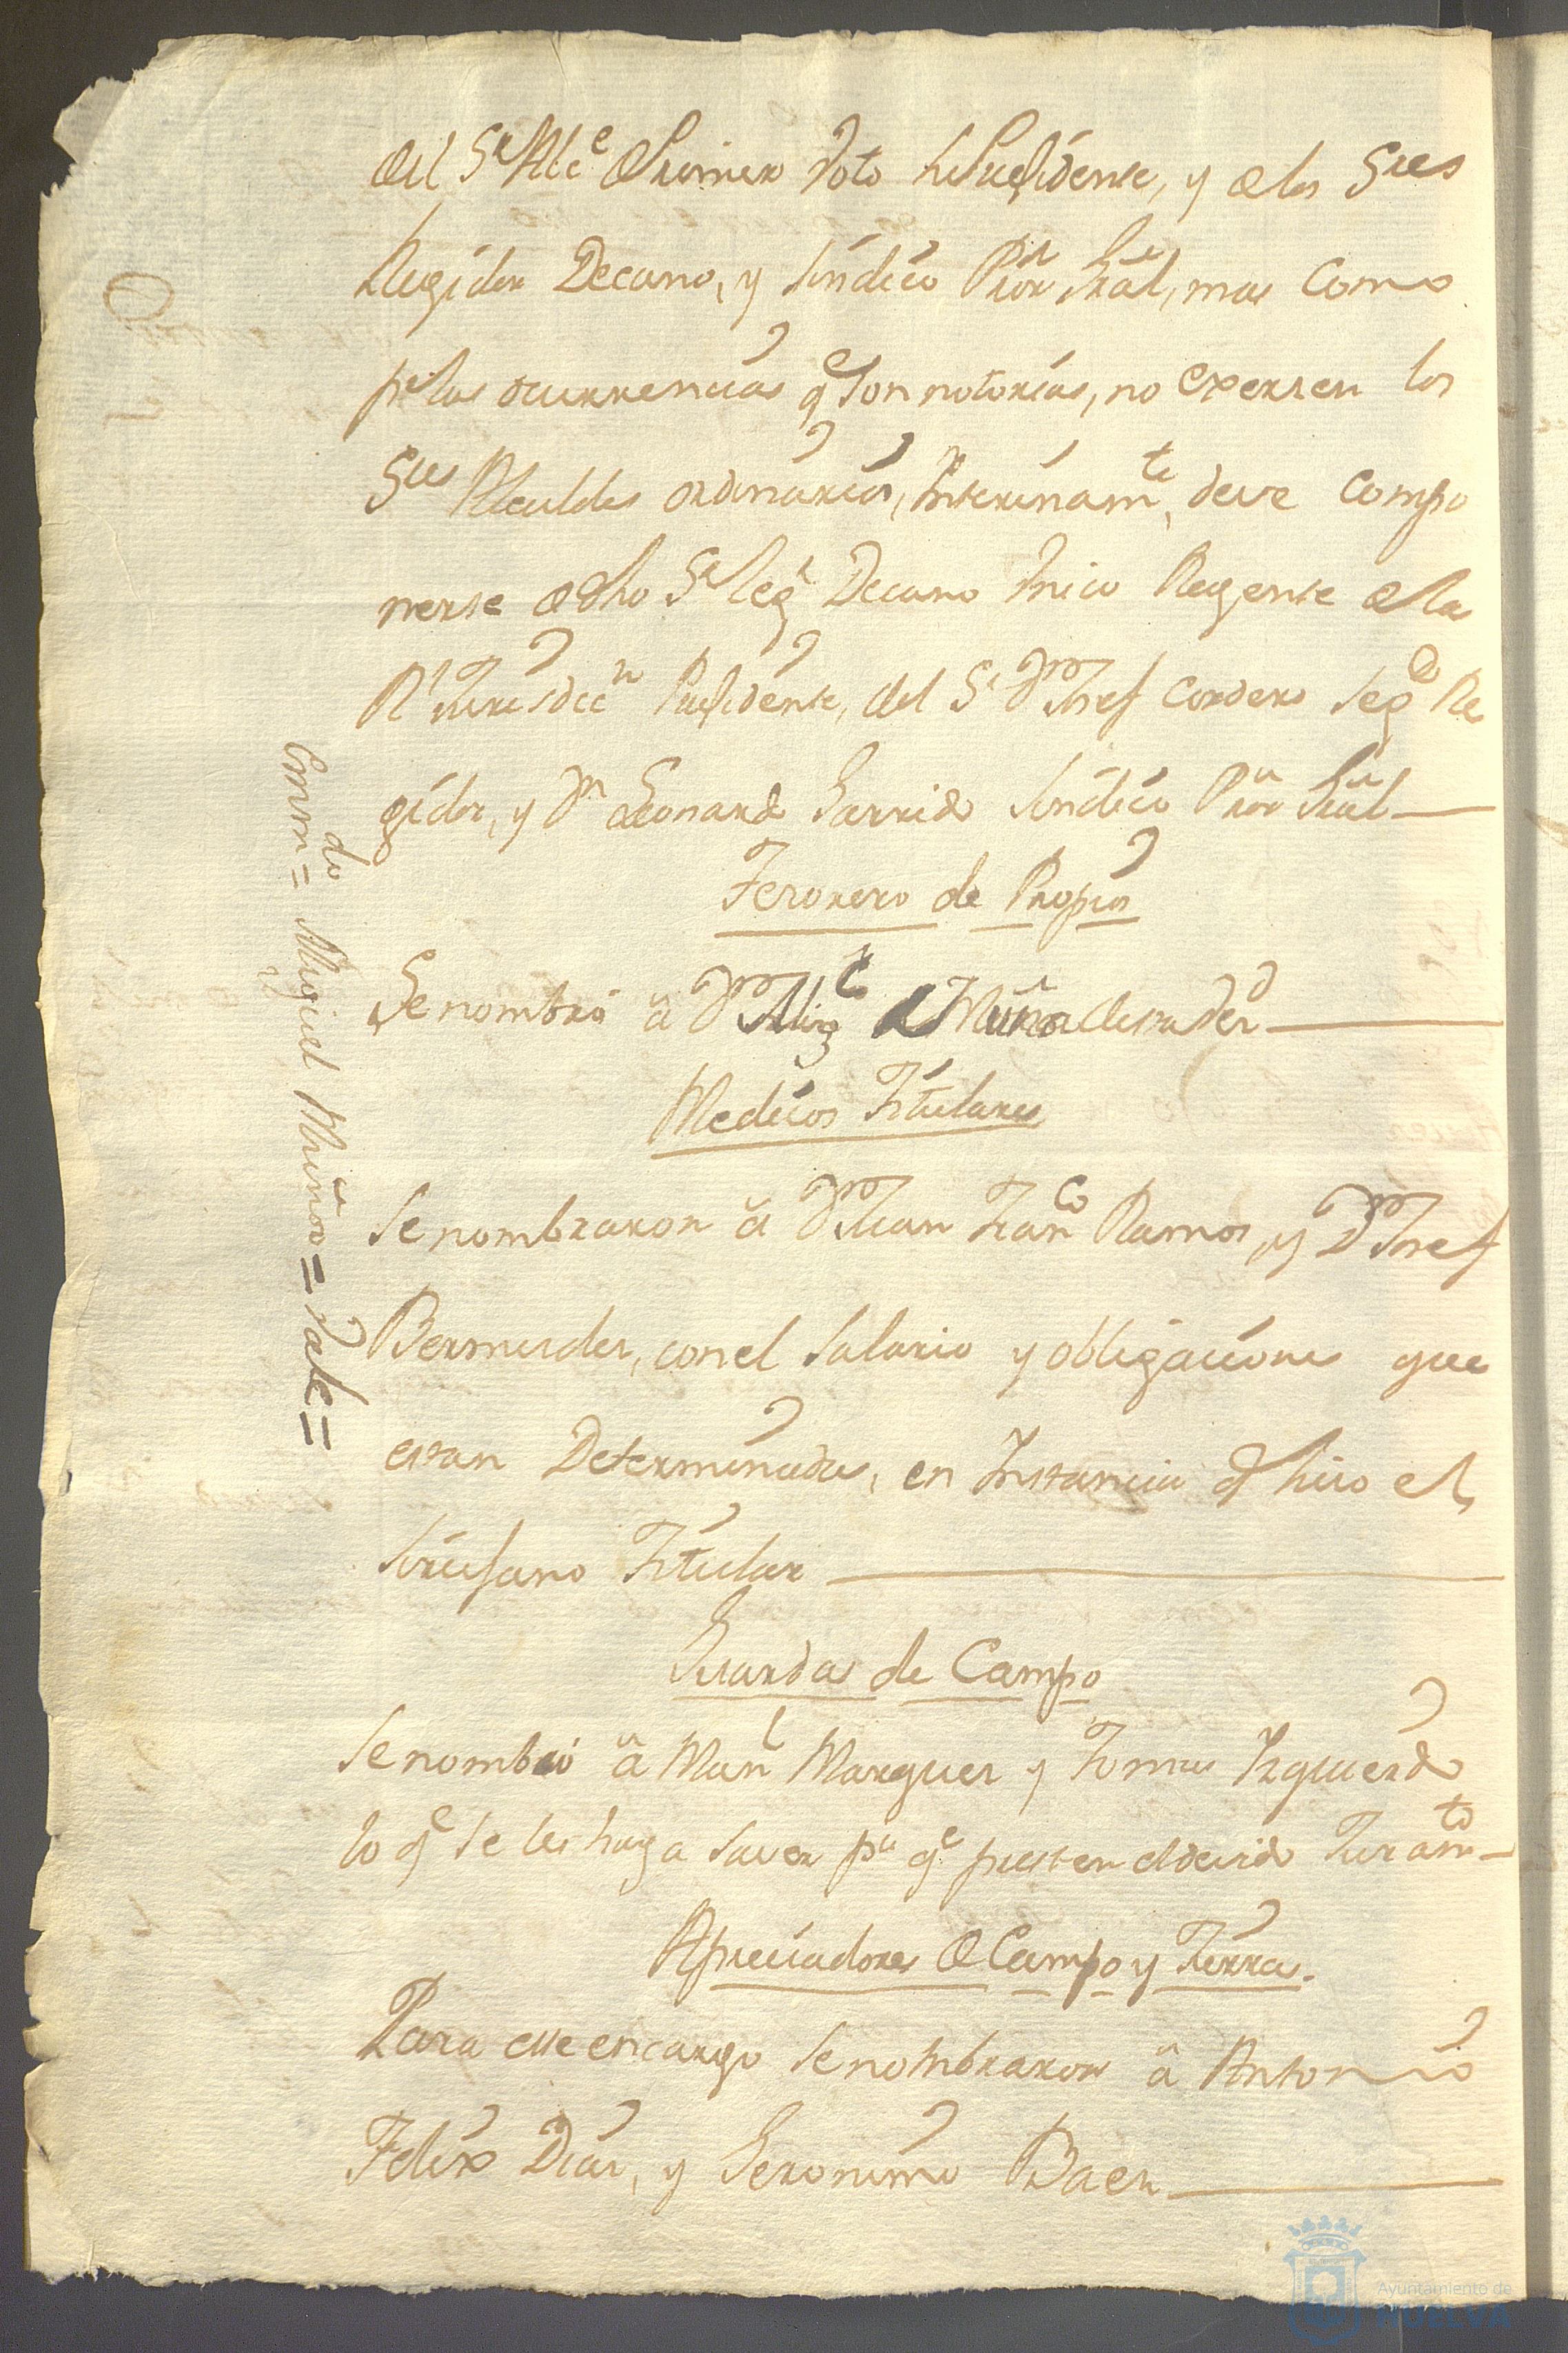 del Sr Alce de Primer Voto su Presidente, y de los Sres
Regidor Decano, y Sindico Pror Gral, mas como
pr las ocurrencias qe son notorias, no exersen los
Sres Alcaldes ordinarios, Interinamte, deve compo
nerse de dho Sr Regr Decano Unico Regente de la
Rl Jurisdicn Presidente, del Sr Dn Josef Cordero Segdo Re
gidor, y Dn Leonardo Garrido Sindico Pror Gral
Tesorero de Propios
Se nombró â Dn Migl Muñoz
Medicos Titulares
Se nombraron â Dn Juan Franco Ramos, y Dn Josef
Bermudes, con el Salario y obligaciones que
estan Determinadas, en Instancia q hiso el
Sirujano Titular
Guardas de Campo
Se nombró â Manl Marques y Tomas Izquierdo
lo qe se les haga saver pa qe presten el devido Juramto
Apreciadores de Campo y Tierras.
Para este encargo Se nombraron â Antonio
Felix Dias, y Geronimo Baes
Enmdo = Miguel Muñoz = Vale =
Ayuntamiento de
HUELVA